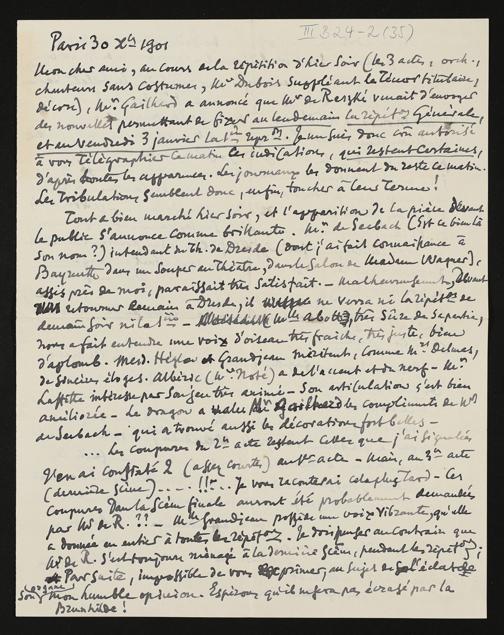 III B 24-2 (35)
Paris 30 Xbre 1901
Mon cher ami, au cours de la répétition d'hier soir (les 3 actes, orch.,
chanteurs sans costumes, Mr Dubois suppléant le ténor titulaire,
décors), Mr Gailhard a annoncé que Mr de Reszké venait d'envoyer
des nouvelles permettant de fixer au lendemain la répét. Générale,
et au vendredi 3 janvier la 1ère représon. Je me suis, donc cru autorisé
à vous télégraphier ce matin ces indications, qui restent certaines,
d'après toutes les apparences. Les journaux les donnent du reste ce matin.
Les tribulations semblent donc, enfin, toucher à leur terme !
Tout a bien marché hier soir, et l'apparition de la pièce devant
le public s'annonce comme brillante. Mr de Seebach (Est-ce bien là
son nom ?) intendant du Th. de Dresde (dont j'ai fait connaissance à
Bayreuth dans un souper au théâtre, dans le salon de Madame Wagner),
assis près de moi, paraissait très satisfait. – Malheureusement, devant
retourner demain à Dresde, il ne verra ni la répéton de
demain soir ni la 1ère – Melle très sûre de sa partie,
nous a fait entendre une voix d'oiseau très fraîche, très juste, bien
d'aplomb. Mesd. Héglon et Grandjean méritent, comme Mr Delmas,
de sincères éloges. Albéric (Mr Noté) a de l'accent et du nerf – Mr
Laffitte intéresse par son jeu très animé – Son articulation s'est bien
améliorée – Le dragon a valu à Mr Gailhard les compliments de Mr
de Seebach – qui a trouvé aussi les décorations fort belles –
... Les coupures du 2e acte restent celles que j'ai signalées
J'en ai constaté 2 (assez courtes) au 1er acte – Mais, au 3e acte
(dernière scène) ---- !!... Je vous raconterai cela plus tard – Ces
coupures dans la scène finale auront été probablement demandées
par Mr de R. ?? – Melle Grandjean possède une voix vibrante, qu'elle
a donnée en entier à toutes les répétons. Je dois penser au contraire que
Mr de R. s'est toujours ménagé à la dernière scène, pendant les répétons ;
Par suite, impossible de vous exprimer, au sujet de l'éclat de
son organe mon humble opinion. Espérons qu'il ne sera pas écrasé par la
Brunhilde !